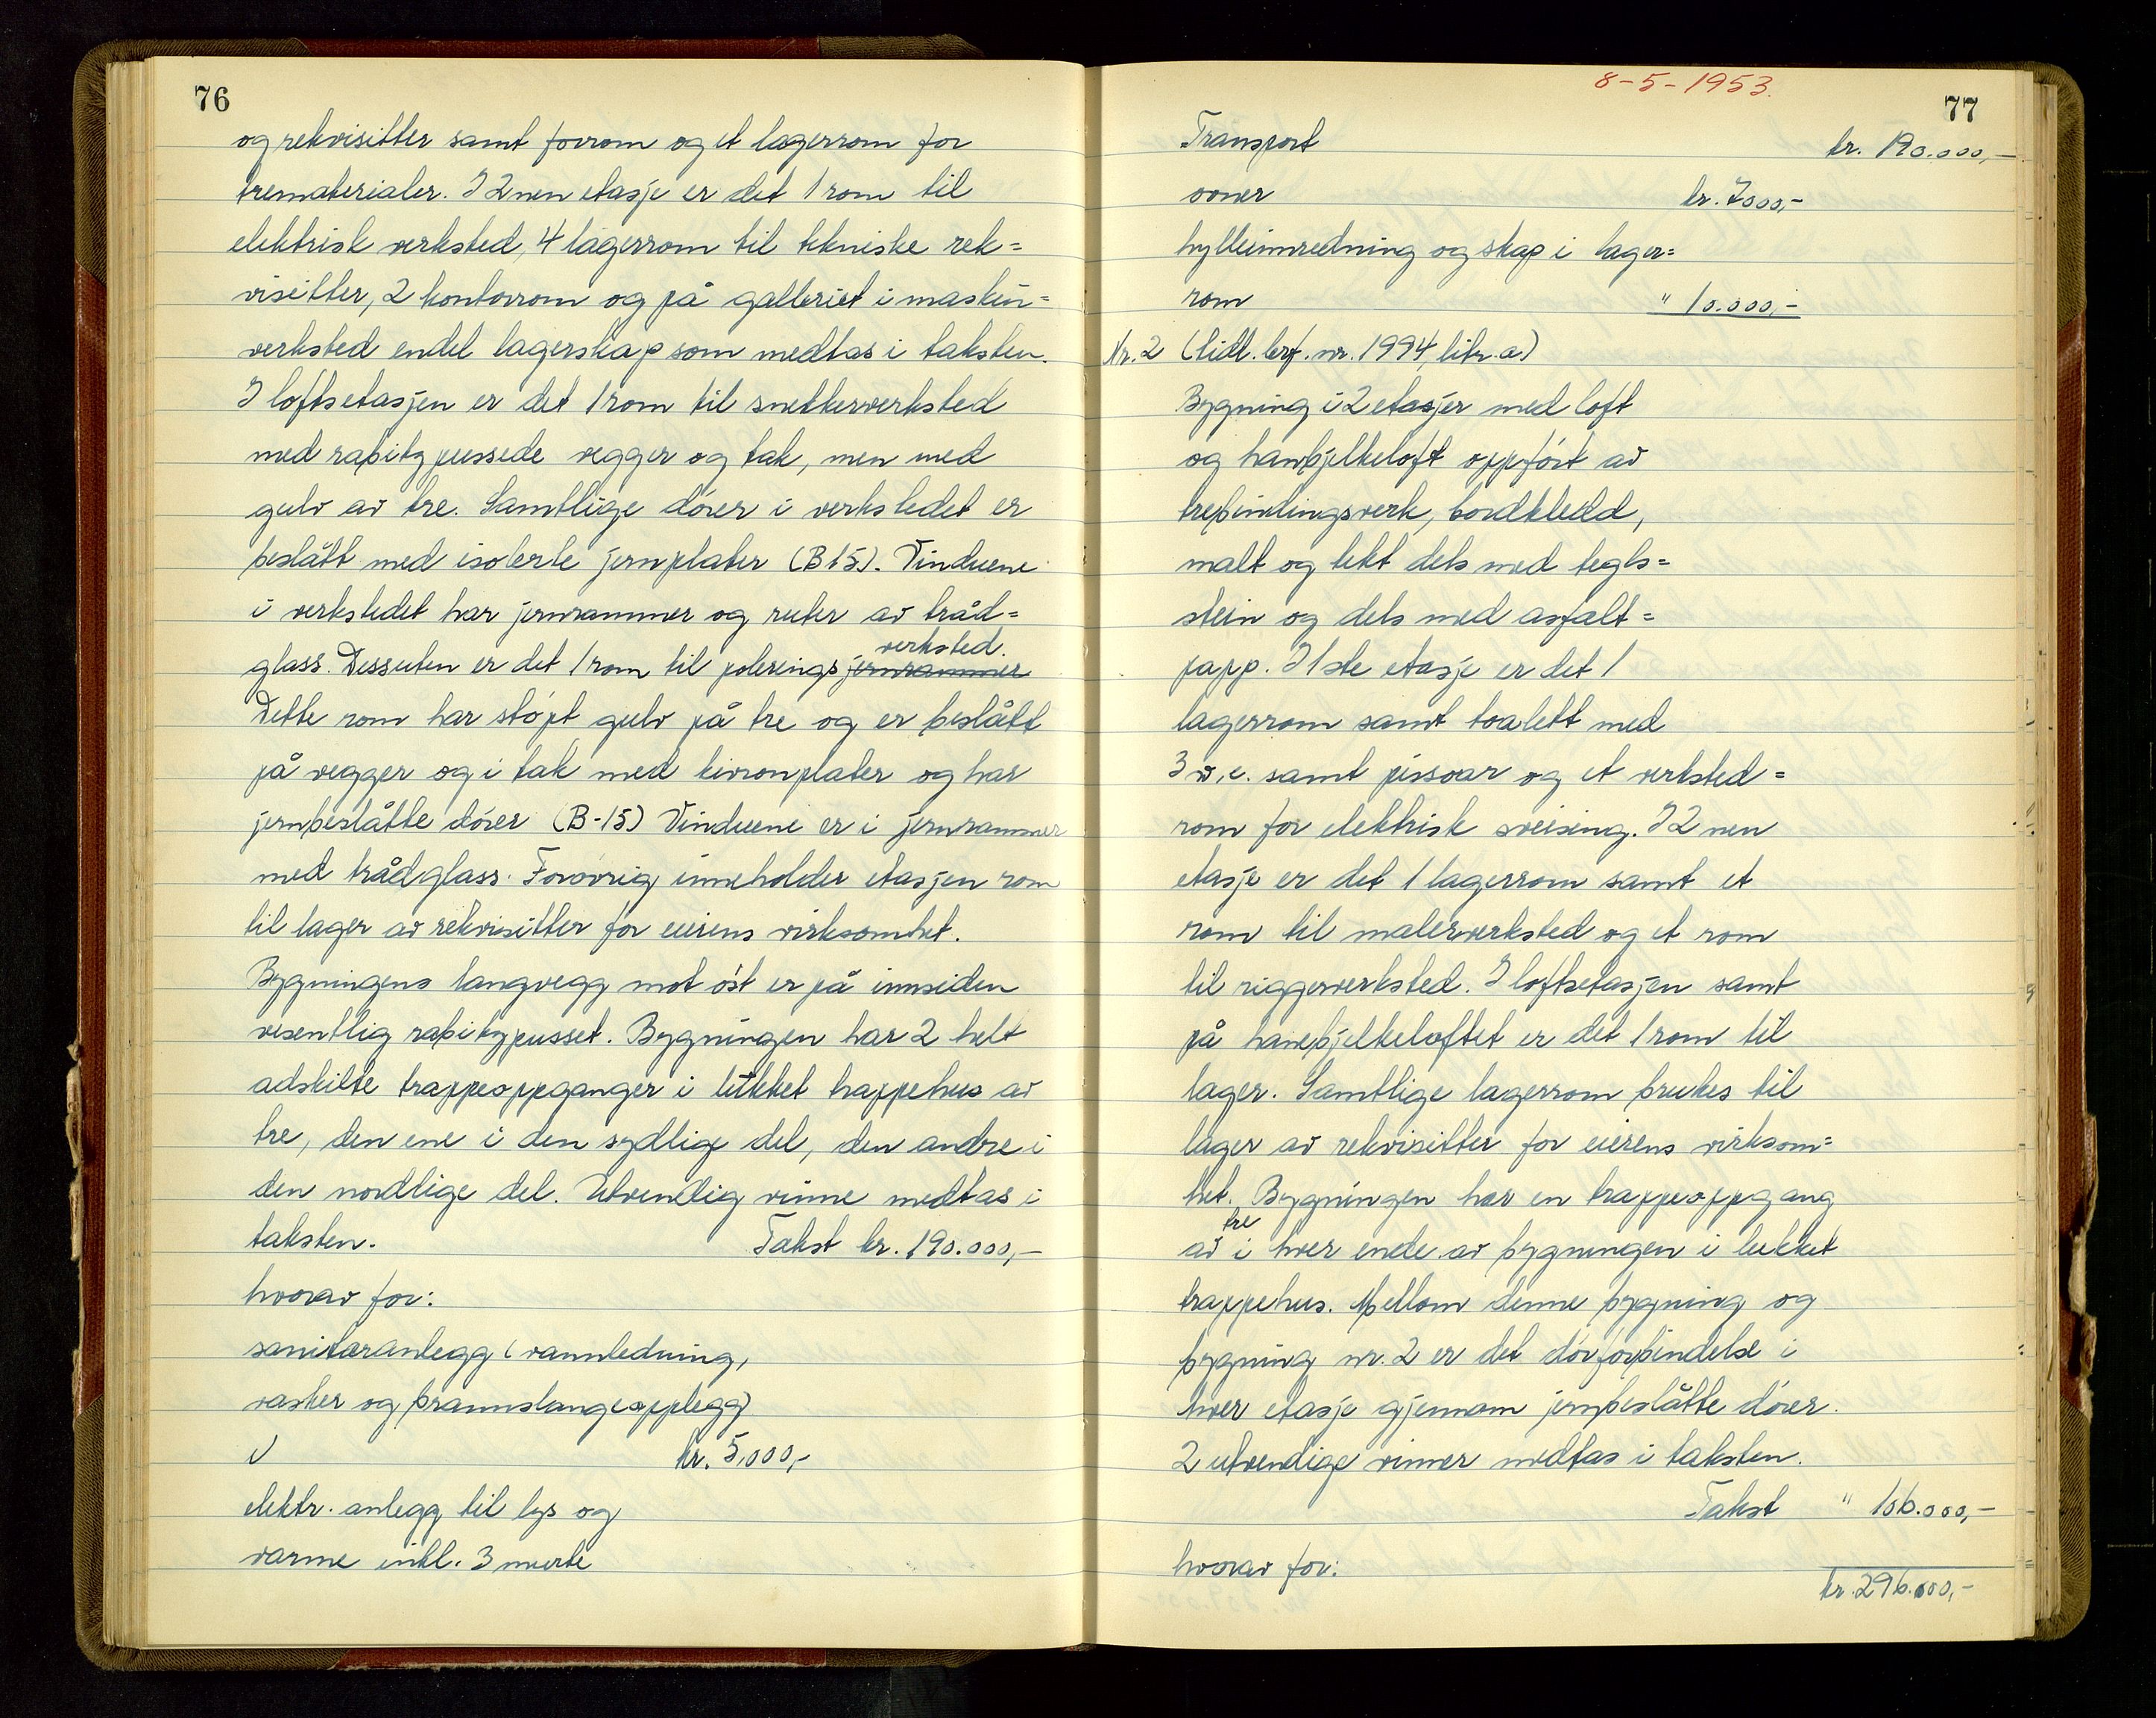 76
og rekvisitter samt forrom og et lagerrom for
trematerialer. I 2nen etasje er det 1 rom til
elektrisk verksted, 4 lagerrom til tekniske rek=
visitter, 2 kontorrom og på galleriet i maskin=
verksted endel lagerskap som medtas i taksten.
I loftsetasjen er det 1 rom til snekkerverksted
med rabitzpussede vegger og tak, men med
gulv av tre. Samtlige dører i verkstedet er
beslått med isolerte jernplater (B15). Vinduene
i verkstedet har jernrammer og ruter av tråd=
verksted.
glass. Dessuten er det 1 rom til polerings jernrammer
Dette rom har støpt gulv på tre og er beslått
på vegger og i tak med hironplater og har
jernbeslåtte dører (B-15) Vinduene er i jernrammer
med trådglass. Forøvrig inneholder etasjen rom
til lager av rekvisitter for eierens virksomhet.
Bygningens langvegg mot øst er på innsiden
vesentlig rabitzpusset. Bygningen har 2 helt
adskilte trappeoppganger i lukket trappehus av
tre, den ene i den sydlige del, den andre i
den nordlige del. Utvendig vinne medtas i
taksten. Takst kr. 190.000,-
hvorav for:
sanitæranlegg (vannledning,
vasker og brannslangeopplegg)
kr. 5.000,-
elektr. anlegg til lys og
varme inkl. 3 murte
8-5-1953.
77
Transport kr. 190.000,-
ovner kr. 7000,-
hylleinnredning og skap i lager=
rom " 10.000,-
Nr. 2 (tidl. brf. nr. 1994, litr. a)
Bygning i 2 etasjer med loft
og hanebjelkeloft oppført av
trebindingsverk, bordkledd,
malt og tekt dels med tegls=
stein og dels med asfalt=
papp. I 1ste etasje er det 1
lagerrom samt toalett med
3 w.c. samt pissoar og et verksted=
rom for elektrisk sveising. I 2nen
etasje er det 1 lagerrom samt et
rom til malerverksted og et rom
til riggerverksted. I loftsetasjen samt
på hanebjelkeloftet er det 1 rom til
lager. Samtlige lagerrom brukes til
lager av rekvisitter for eierens virksom=
het. Bygningen har en trappeoppgang
tre
av i hver ende av bygningen i lukket
trappehus. Mellom denne bygning og
bygning nr. 2 er det dørforbindelse i
hver etasje gjennom jernbeslåtte dører.
2 utvendige vinner medtas i taksten.
Takst " 106.000,-
hvorav for:
kr. 296.000,-